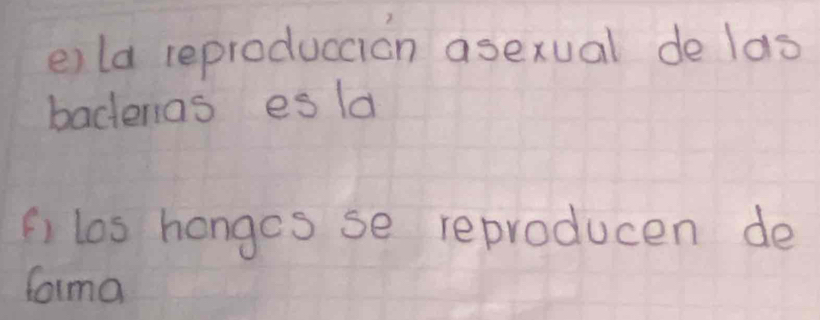 e) la reproducción asexual de las
bacterias es la
f) los hongos se reproducen de
forma